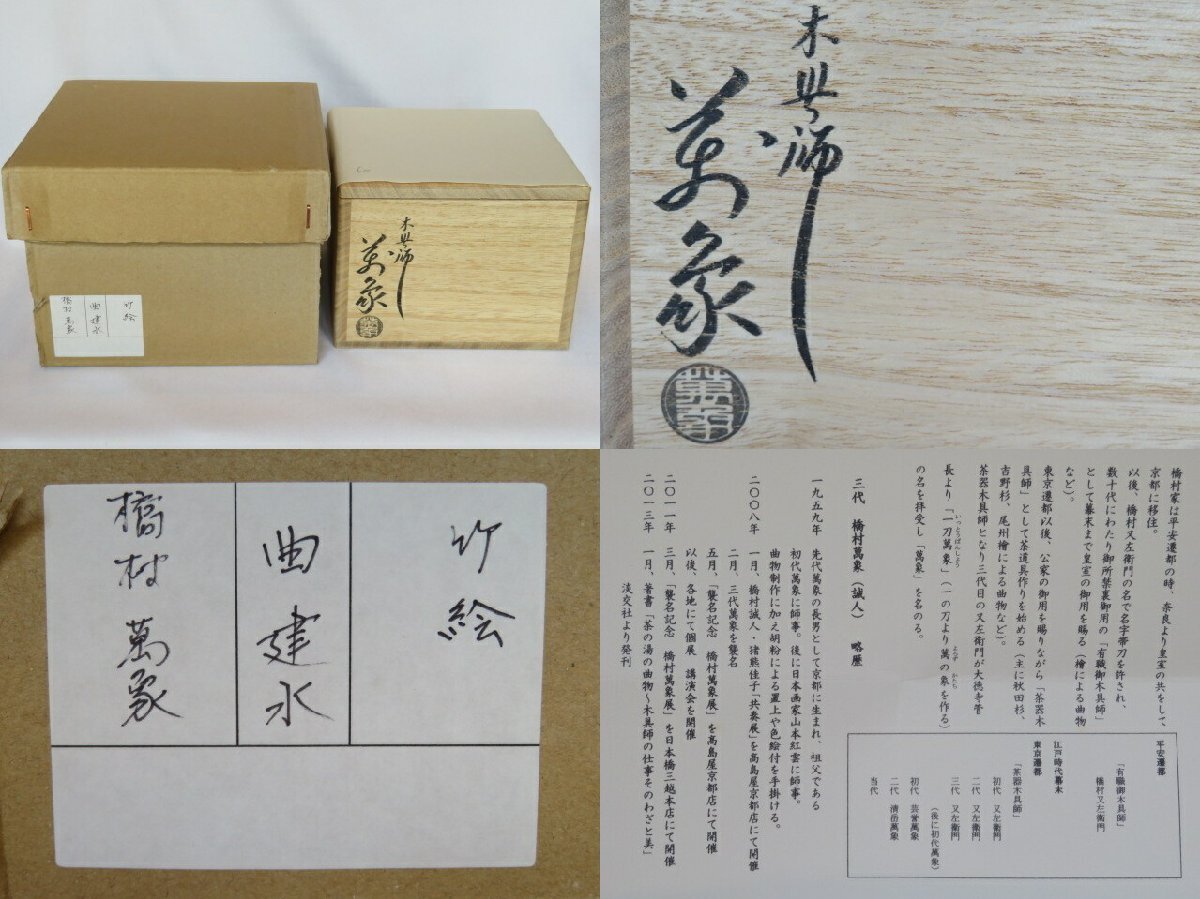 木具師
萬象
萬象
竹絵
曲建水
橋村萬象
木具師
萬象
萬象
竹絵
曲建水
橋村萬象
橋村家は平安遷都の時、奈良より皇室の共をして
京都に移住。
以後、橋村又左衛門の名で名字帯刀を許され、
数十代にわたり御所禁裏御用の「有職御木具師」
として幕末まで皇室の御用を賜る(檜による曲物
など)。
東京遷都以後、公家の御用を賜りながら「茶器木
具師」として茶道具作りを始める(主に秋田杉、
吉野杉、尾州檜による曲物など)。
茶器木具師となり三代目の又左衛門が大徳寺管
長より「一刀萬象」(一の万より萬の象を作る)
いっとうばんしょう
よろず
かたち
の名を拝受し「萬象」を名のる。
平安遷都
「有職御木具師」
橋村又左衛門
江戸時代幕末
東京遷都
「茶器木具師」
初代 又左衛門
二代 又左衛門
三代 又左衛門
(後に初代萬象)
初代 芸誉萬象
二代 清岳萬象
当代
三代 橋村萬象(誠人) 略歴
一九五九年 先代萬象の長男として京都に生まれ、祖父である
初代萬象に師事。後に日本画家山本紅雲に師事。
曲物制作に加え胡粉による置上や色絵付を手掛ける。
二〇〇八年 一月、橋村誠人・猪熊佳子「共奏展」を高島屋京都店にて開催
二月、三代萬象を襲名
五月、「襲名記念 橋村萬象展」を高島屋京都店にて開催
以後、各地にて個展 講演会を開催
二〇一一年 三月、「襲名記念 橋村萬象展」を日本橋三越本店にて開催
二〇一三年 一月、著書「茶の湯の曲物~木具師の仕事そのわざと美」
淡交社より発刊